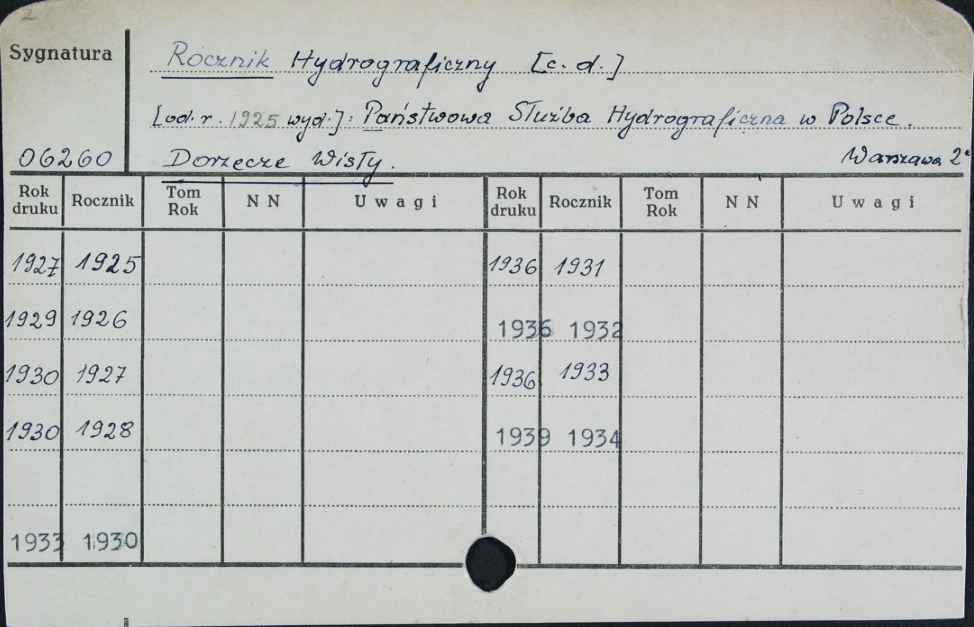 2
Sygnatura
Rocznik Hydrograficzny [c. d.]
[od. r. 1925 wyd.]: Państwowa Służba Hydrograficzna w Polsce.
06260 Dorzecze Wisły. Warszawa 2°
Rok druku Rocznik Tom Rok N N Uwagi Rok druku Rocznik Tom Rok N N Uwagi
1927 1925 1936 1931
1929 1926 1936 1932
1930 1927 1936 1933
1930 1928 1939 1934
1933 1930